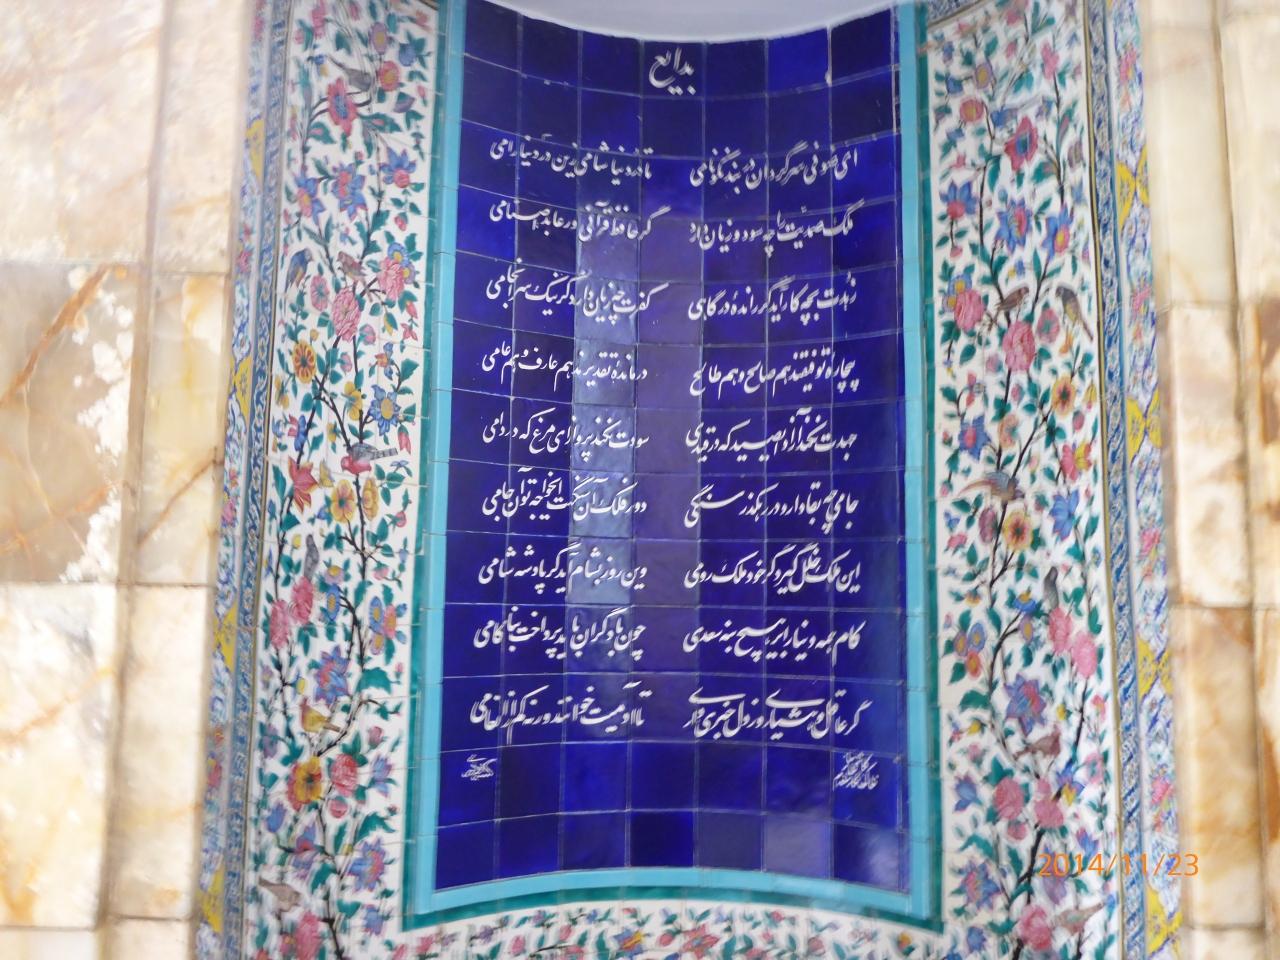 بدایع
ای صوفی سرگردان در بند نکونامی تا درد نیاشامی زین درد نیارامی
ملک صمدیت را چه سود و زیان دارد گر حافظ قرآنی ور عابد اصنامی
زهدت بچه کار آید گر رانده درگاهی کفرت چه زیان دارد گر نیک سرانجامی
بیچاره توفیقند هم صالح و هم طالح درمانده تقدیرند هم عارف و هم عامی
جهدت نکند آزاد ای صید که در قیدی سودت نکند پرواز ای مرغ که در دامی
جامی چه بقا دارد در رهگذر سنگی دور فلک آن سنگست ای خواجه تو آن جامی
این ملک خلل گیرد گر خود ملک رومی وین روز بشام آید گر پادشه شامی
کام همه دنیا را بر هیچ منه سعدی چون با دگران باید پرداخت بناکامی
گر عاقل و هشیاری وز دل خبری داری تا آدمیت خوانند ورنه کم از انعامی
2014/11/23